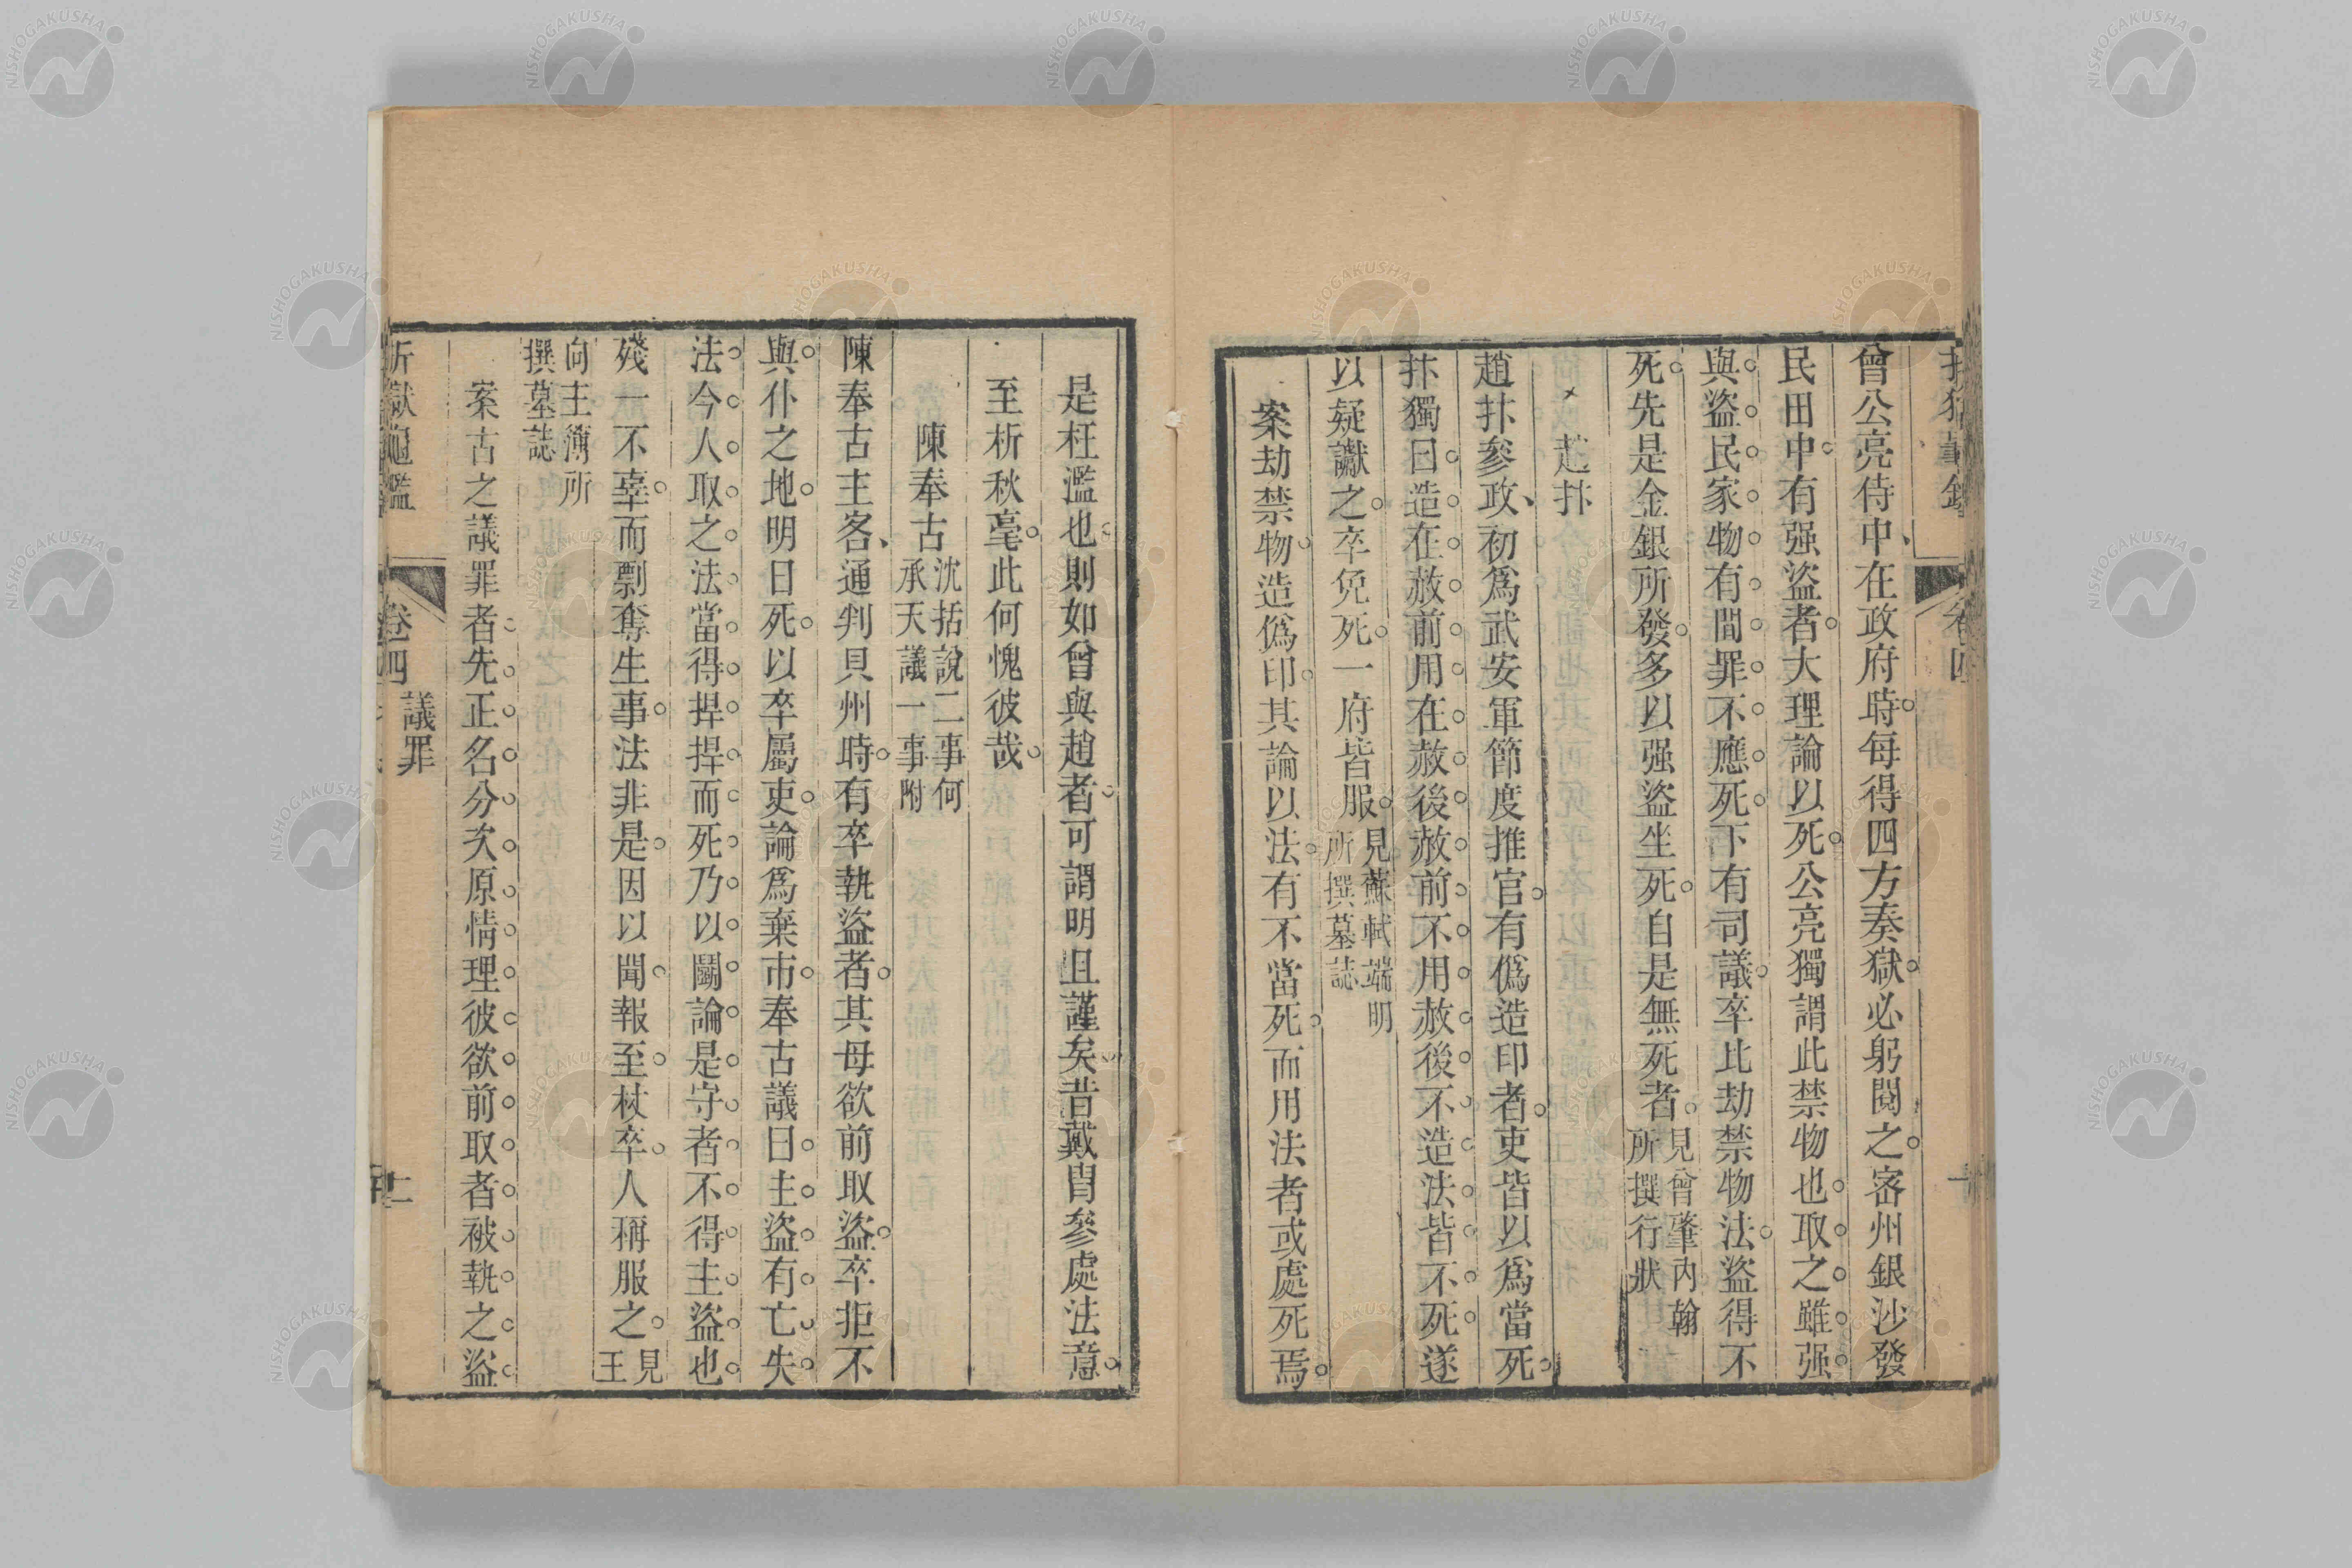 曾公亮侍中在政府時每得四方奏獄必躬閱之密州銀沙發
民田中有强盜者大理論以死公亮獨謂此禁物也取之雖强
與盜民家物有間罪不應死下有司議卒比劫禁物法盜得不
死先是金銀所發多以强盜坐死自是無死者見曾肇內翰所撰行狀
趙抃
趙抃參政初爲武安軍節度推官有僞造印者吏皆以爲當死
抃獨曰造在赦前用在赦後赦前不用赦後不造法皆不死遂
以疑讞之卒免死一府皆服見蘇軾端明所撰墓誌
案劫禁物造僞印其論以法有不當死而用法者或處死焉
是枉濫也則如曾與趙者可謂明且謹矣昔戴胄參處法意
至析秋毫此何愧彼哉
陳奉古沈括說二事何承天議一事附
陳奉古主客通判貝州時有卒執盜者其母欲前取盜卒拒不
與仆之地明日死以卒屬吏論爲棄市奉古議曰主盜有亡失
法今人取之法當得捍捍而死乃以鬬論是守者不得主盜也
殘一不辜而剽奪生事法非是因以聞報至杖卒人稱服之見王
向主簿所撰墓誌
案古之議罪者先正名分次原情理彼欲前取者被執之盜
折獄龜鑑 卷四 議罪 十二
NISHOGAKUSHA